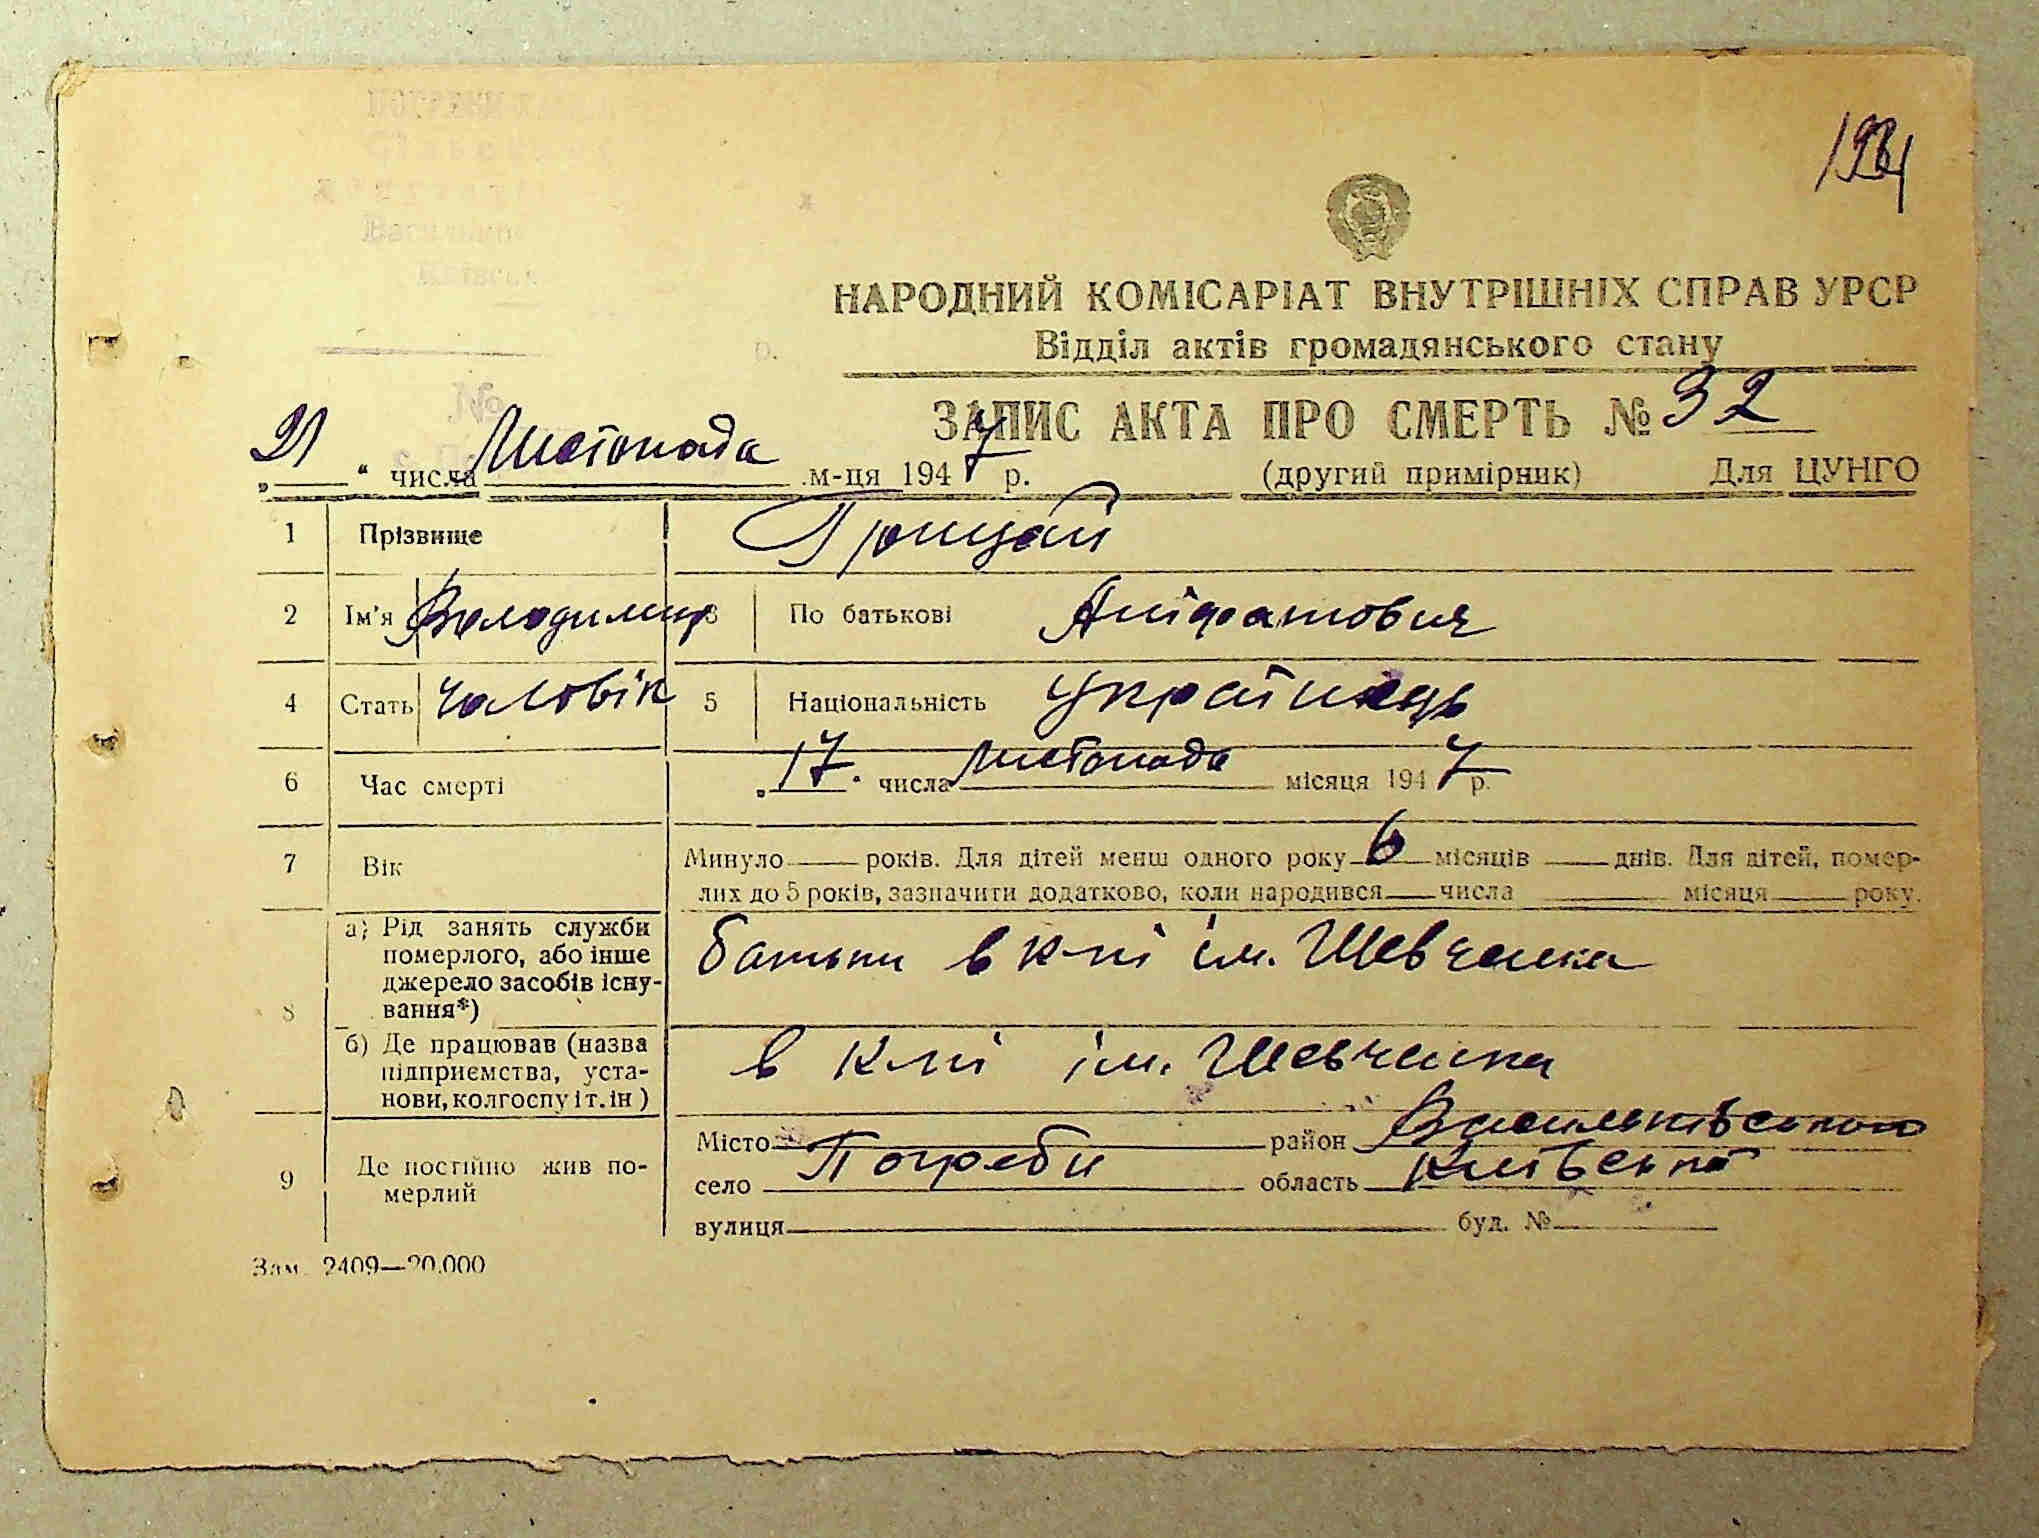 НАРОДНИЙ КОМІСАРІАТ ВНУТРІШНІХ СПРАВ УРСР
Відділ актів громадянського стану
ЗАПИС АКТА ПРО СМЕРТЬ № 32
„ 21 “ числа Листопада м-ця 1947 р.
(другий примірник) Для ЦУНГО
1 Прізвище Грицай
2 Ім'я Володимир 3 По батькові
4 Стать Чоловік 5 Національність Українець
6 Час смерті „ 17 “ числа Листопада місяця 1947 р.
7 Вік Минуло років. Для дітей менш одного року 6 місяців днів. Для дітей, помер-
лих до 5 років, зазначити додатково, коли народився числа місяця року.
8 а) Рід занять служби
померлого, або інше
джерело засобів існу-
вання*)
батьки в к-пі ім. Шевченка
б) Де працював (назва
підприємства, уста-
нови, колгоспу і т. ін )
в к-пі ім. Шевченка
9 Де постійно жив по-
мерлий
Місто район Васильківського
село Погреби область Київської
вулиця буд. №
Зам. 2409—20.000